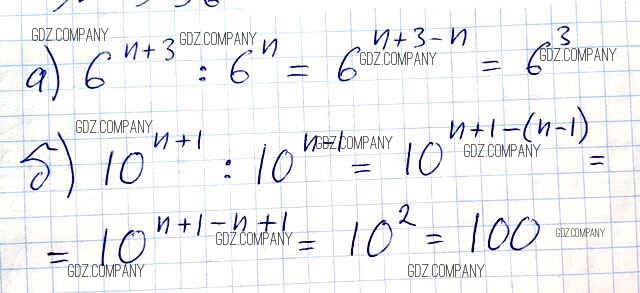 GDZ.COMPANY GDZ.COMPANY
а) 6^{n+3} : 6^{n} = 6^{n+3-n} = 6^{3}
GDZ.COMPANY GDZ.COMPANY
GDZ.COMPANY GDZ.COMPANY GDZ.COMPANY
б) 10^{n+1} : 10^{n-1} = 10^{n+1-(n-1)} =
= 10^{n+1-n+1} = 10^{2} = 100
GDZ.COMPANY GDZ.COMPANY
GDZ.COMPANY GDZ.COMPANY